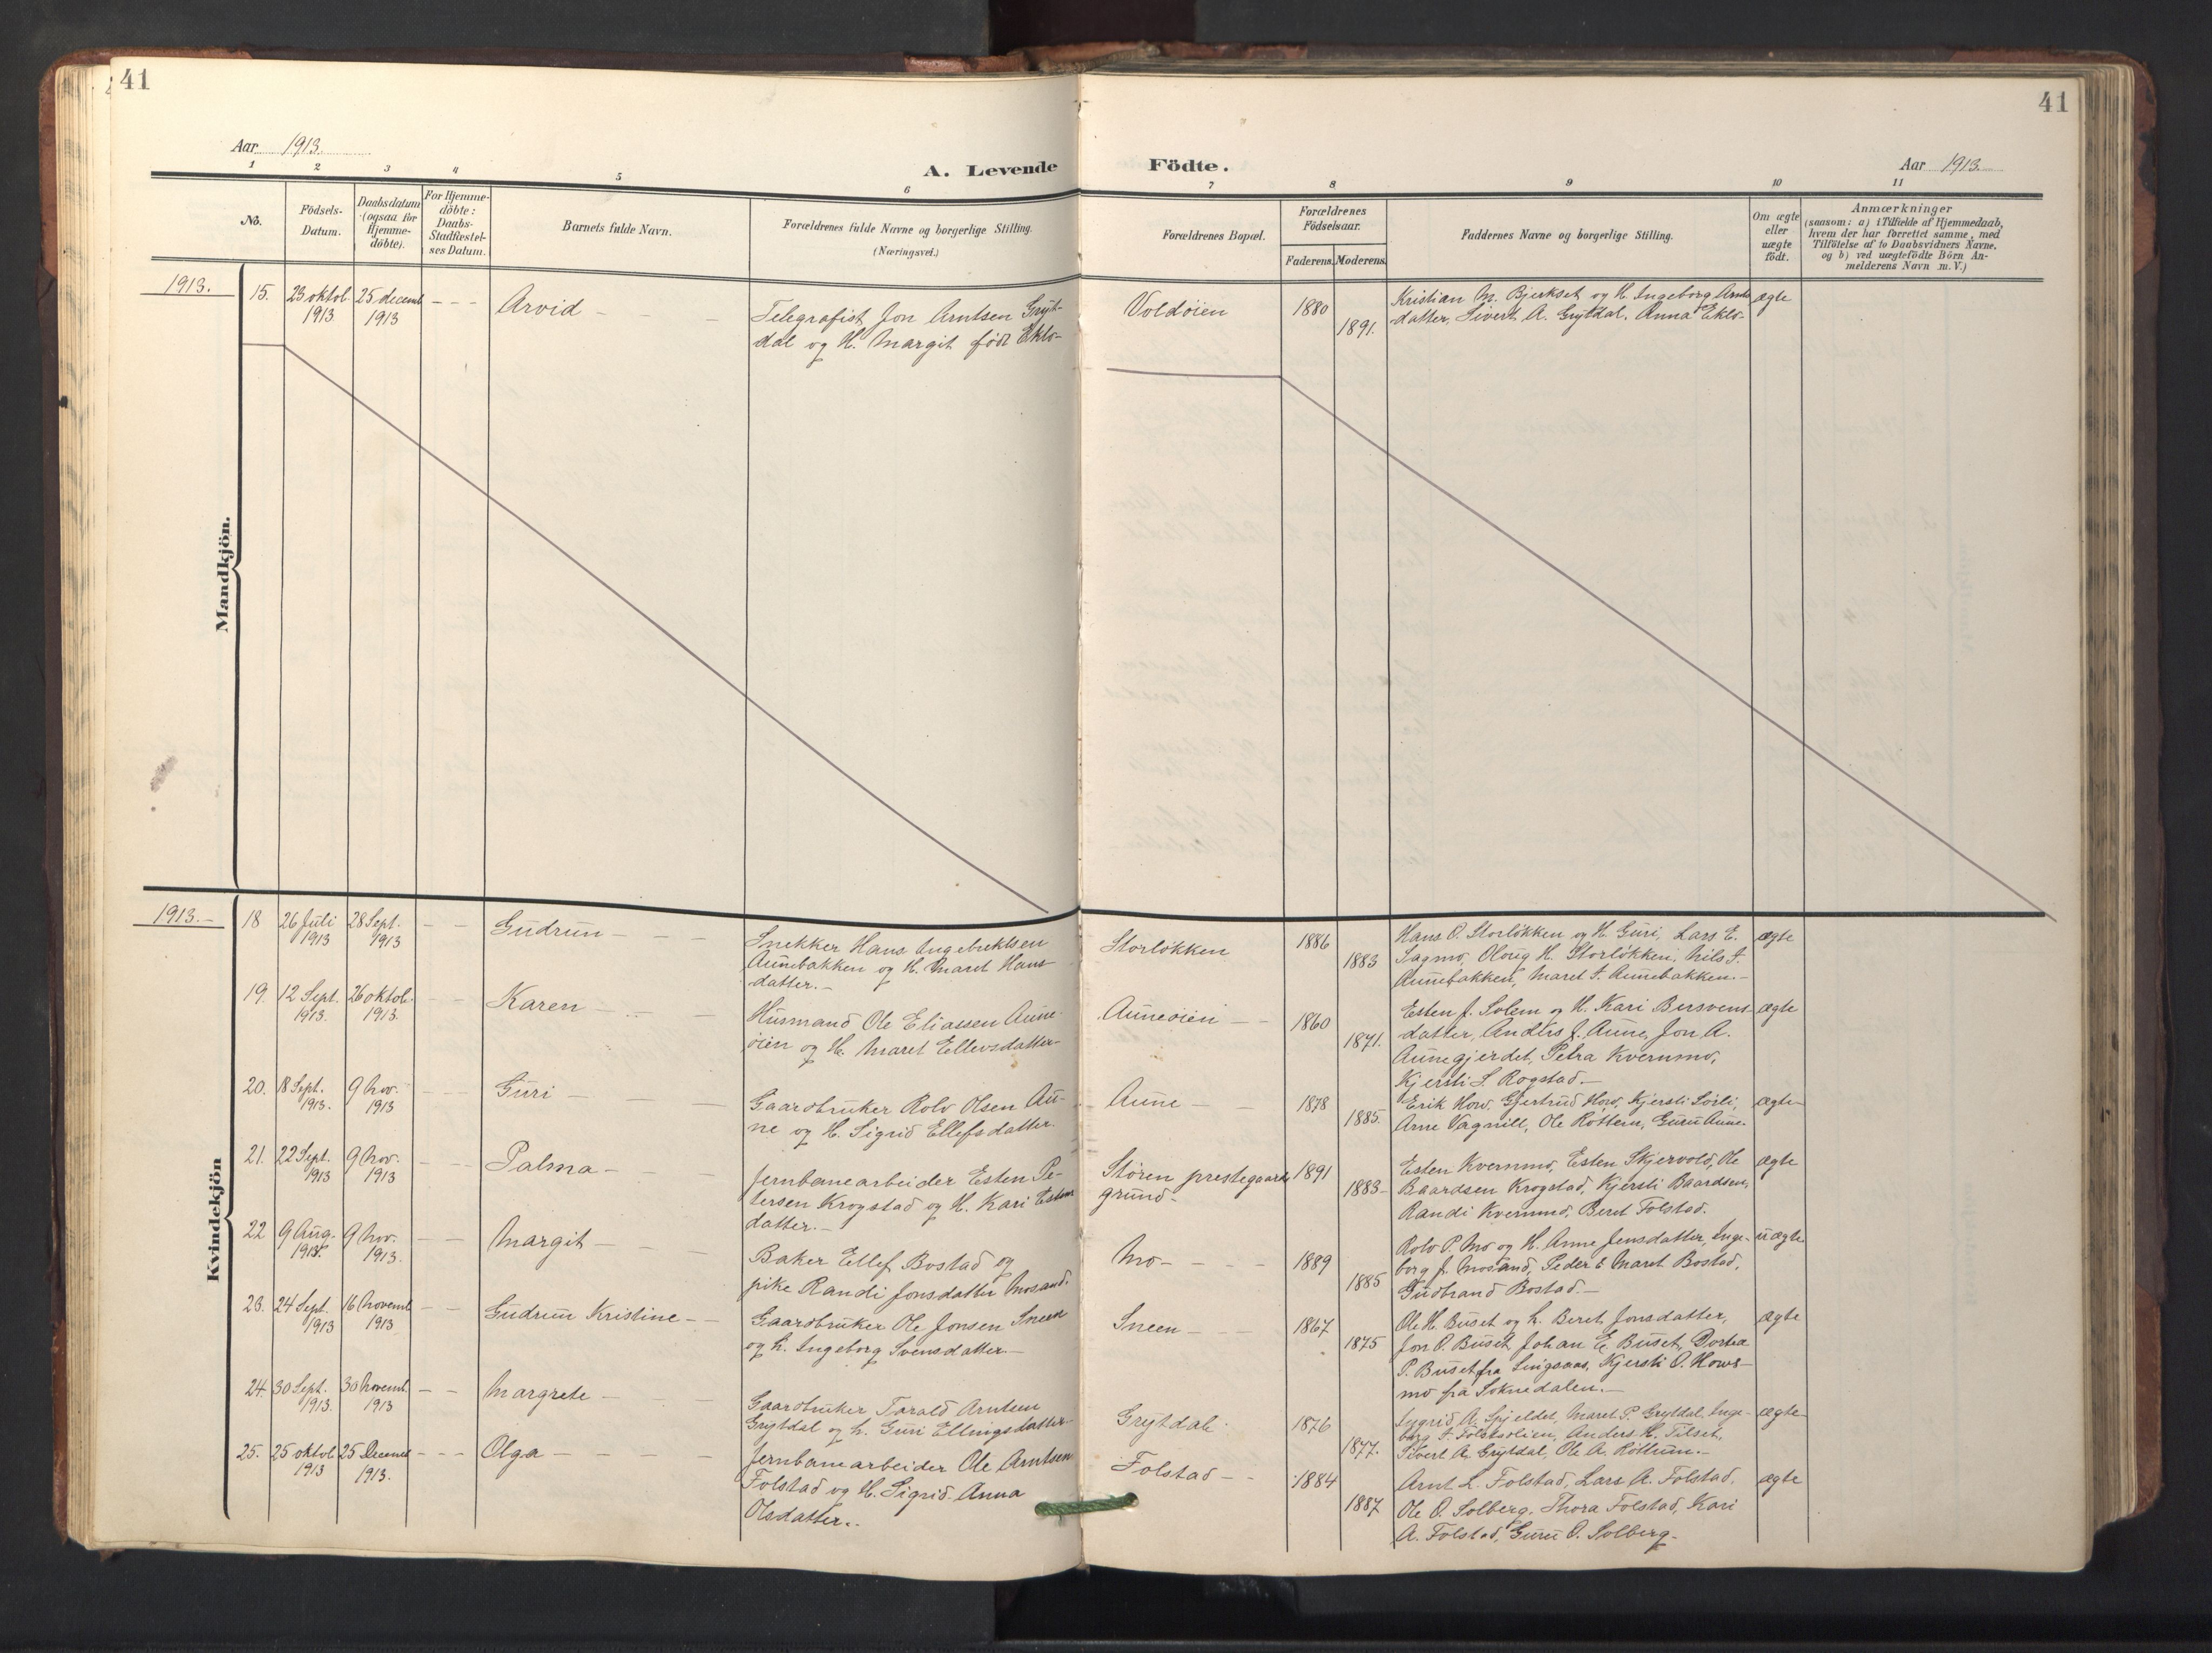 41
41
Aar 1913.
A. Levende Födte.
Aar 1913.
1 2 3 4 5 6 7 8 9 10 11
No.
Födsels-
Datum.
Daabsdatum
(ogsaa for
Hjemme-
döbte).
For Hjemme-
döbte:
Daabs-
Stadfæstel-
ses Datum.
Barnets fulde Navn.
Forældrenes fulde Navne og borgerlige Stilling.
(Næringsvei.)
Forældrenes Bopæl.
Forældrenes
Födselsaar.
Faderens. Moderens.
Faddernes Navne og borgerlige Stilling.
Om ægte
eller
uægte
födt.
Anmærkninger
(saasom: a) i Tilfælde af Hjemmedaab,
hvem der har forrettet samme, med
Tilföielse af to Daabsvidners Navne.
og b) ved uægtefödte Börn An-
melderens Navn m. V.)
Mandkjön.
1913.
15.
23 oktob.
1913
25 decemb
1913
- - -
Arvid - - -
Telegrafist Jon Arntsen Gryt-
dal og H. Margit født Eklo-
Voldøien
1880
1891.
Kristian M. Bjerkset og H. Ingeborg Arnts
datter, Sivert A. Grytdal, Anna Eklo-
ægte
Kvindekjön
1913.-
18
26 Juli
1913
28 Sept.
1913
- -
Gudrun - - -
Snekker Hans Ingebrektsen
Aunebakken og H. Maret Hans
datter.-
Storløkken
1886
1883
Hans O. Storløkken og H. Guri, Lars E.
Sagmo, Olaug H. Storløkken, Nils I.
Aunebakken, Maret I. Aunebakken.-
ægte
19.
12 Sept.
1913.
26 oktob.
1913.
- -
Karen - - -
Husmand Ole Eliassen Aune-
øien og H. Maret Ellevsdatter-
Auneøien - -
1860
1871.
Esten J. Solem og H. Kari Bersvens
datter, Anders J. Aune, Jon A.
Aunegjerdet, Petra Kvernmo,
Kjersti L Rogstad.-
ægte
20.
18 Sept.
1913.
9 Nov.
1913
- -
Guri - - -
Gaardbruker Rolv Olsen Au-
ne og H. Sigrid Ellefsdatter.
Aune - -
1878
1885.
Erik Hov, Gjertrud Hov, Kjersti Sørli,
Arne Vagnill, Ole Røttem, Guru Aune.
ægte-
21.
22 Sept.
1913
9 Nov.
1913
- -
Palma - - -
Jernbanearbeider Esten Pe-
tersen Krogstad og H. Kari Estens
datter.-
Støren prestegaards
grund-
1891
1883-
Esten Kvernmo, Esten Skjervold, Ole
Baardsen Krogstad, Kjersti Baardsen,
Randi Kvernmo, Beret Folstad.
ægte
22
9 Aug.
1913.
9 Nov.
1913.
- -
Margit - - -
Baker Ellef Bostad og
pike Randi Jonsdatter Mosand.
Mo - - - -
1889
1885
Rolv P. Mo og H. Anne Jensdatter, Inge-
borg J. Mosand, Peder E Maret Bostad,
Gudbrand Bostad.-
uægte
23.
24 Sept.
1913
16 Novemb
1913
- -
Gudrun Kristine - -
Gaardbruker Ole Jonsen Sneen
og h. Ingeborg Svensdatter.-
Sneen - -
1867
1875
Ole H. Buset og h. Beret Jonsdatter,
Jon O. Buset, Johan E. Buset, Dortea
P. Buset fra Singsaas, Kjersti O. Hovs-
mo fra Soknedalen.-
ægte
24.
30 Sept.
1913.
30 Novemb.
1913
- -
Margrete - -
Gaardbruker Tarald Arntsen
Grytdal og h. Guri Ellingsdatter-
Grytdal-
1876
1877.
Sygrid A. Spjeldet, Maret P. Grytdal, Inge-
borg I. Folstadlien, Anders H. Tilset,
Sivert A. Grytdal, Ole A. Røttum.-
ægte-
25.
25 oktob
1913
25 Decemb
1913.
- - -
Olga - - -
Jernbanearbeider Ole Arntsen
Folstad og H. Sigrid Anna
Olsdatter..
Folstad - -
1884
1887
Arnt L. Folstad, Lars A. Folstad,
Ole O. Solberg, Thora Folstad, Kari
A. Folstad, Guru O. Solberg-
ægte